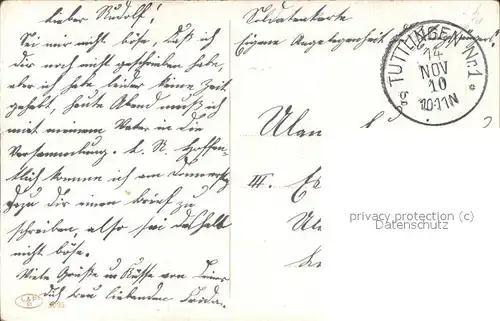 Lieber Rudolf!
Sei mir nicht böse, daß ich
dir noch nicht geschrieben habe,
aber ich habe leider keine Zeit
gehabt, heute Abend muß ich
mit meinem Vater in die
Versammlung. Hoffen-
tlich komme ich am Donnerstag
dazu dir einen Brief zu
schreiben, also sei deshalb
nicht böse.
Viele Grüße u Küsse von Deiner
Dich treu liebenden Frida.
Soldatenkarte
Eigene Angelegenheit des Empfängers
TUTTLINGEN Nr1
14
NOV
10
10-11N
Ulan
III.
Ula
privacy protection (c)
Datenschutz